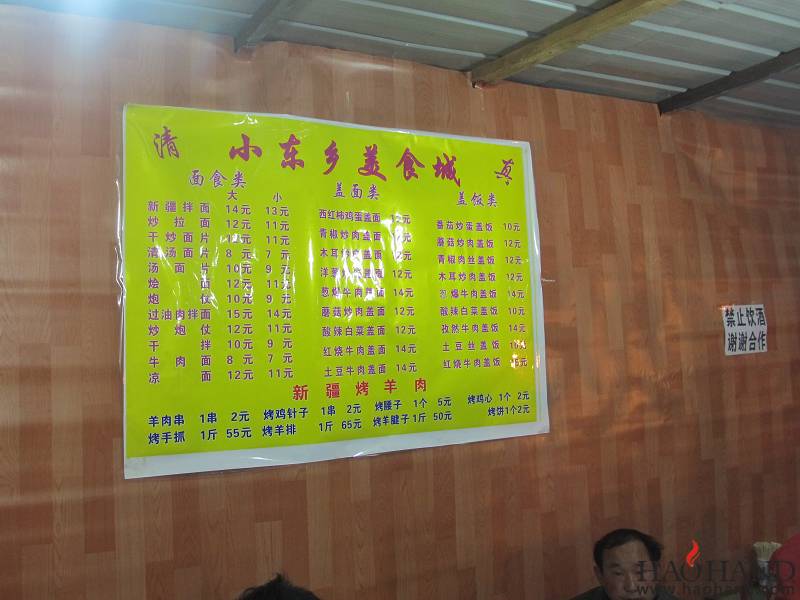 清 小东乡美食城 真
面食类
大 小
新疆拌面 14元 13元
炒拉面 12元 11元
干炒面片 12元 11元
清汤面片 8元 7元
汤面片 10元 9元
烩面 12元 11元
炮仗 10元 9元
过油肉拌面 15元 14元
炒炮仗 12元 11元
干拌 10元 9元
牛肉面 8元 7元
凉面 12元 11元
盖面类
西红柿鸡蛋盖面 12元
青椒炒肉盖面 12元
木耳炒肉盖面 12元
洋葱炒肉盖面 12元
葱爆牛肉盖面 14元
蘑菇炒肉盖面 12元
酸辣白菜盖面 12元
红烧牛肉盖面 14元
土豆牛肉盖面 14元
盖饭类
番茄炒蛋盖饭 10元
蘑菇炒肉盖饭 12元
青椒肉丝盖饭 12元
木耳炒肉盖饭 12元
葱爆牛肉盖饭 14元
酸辣白菜盖饭 10元
孜然牛肉盖饭 14元
土豆丝盖饭
红烧牛肉盖饭 15元
新疆烤羊肉
羊肉串 1串 2元 烤鸡针子 1串 2元 烤腰子 1个 5元 烤鸡心 1个 2元
烤手抓 1斤 55元 烤羊排 1斤 65元 烤羊腱子 1斤 50元 烤饼1个2元
禁止饮酒
谢谢合作
HAOHAND
www.haohand.com